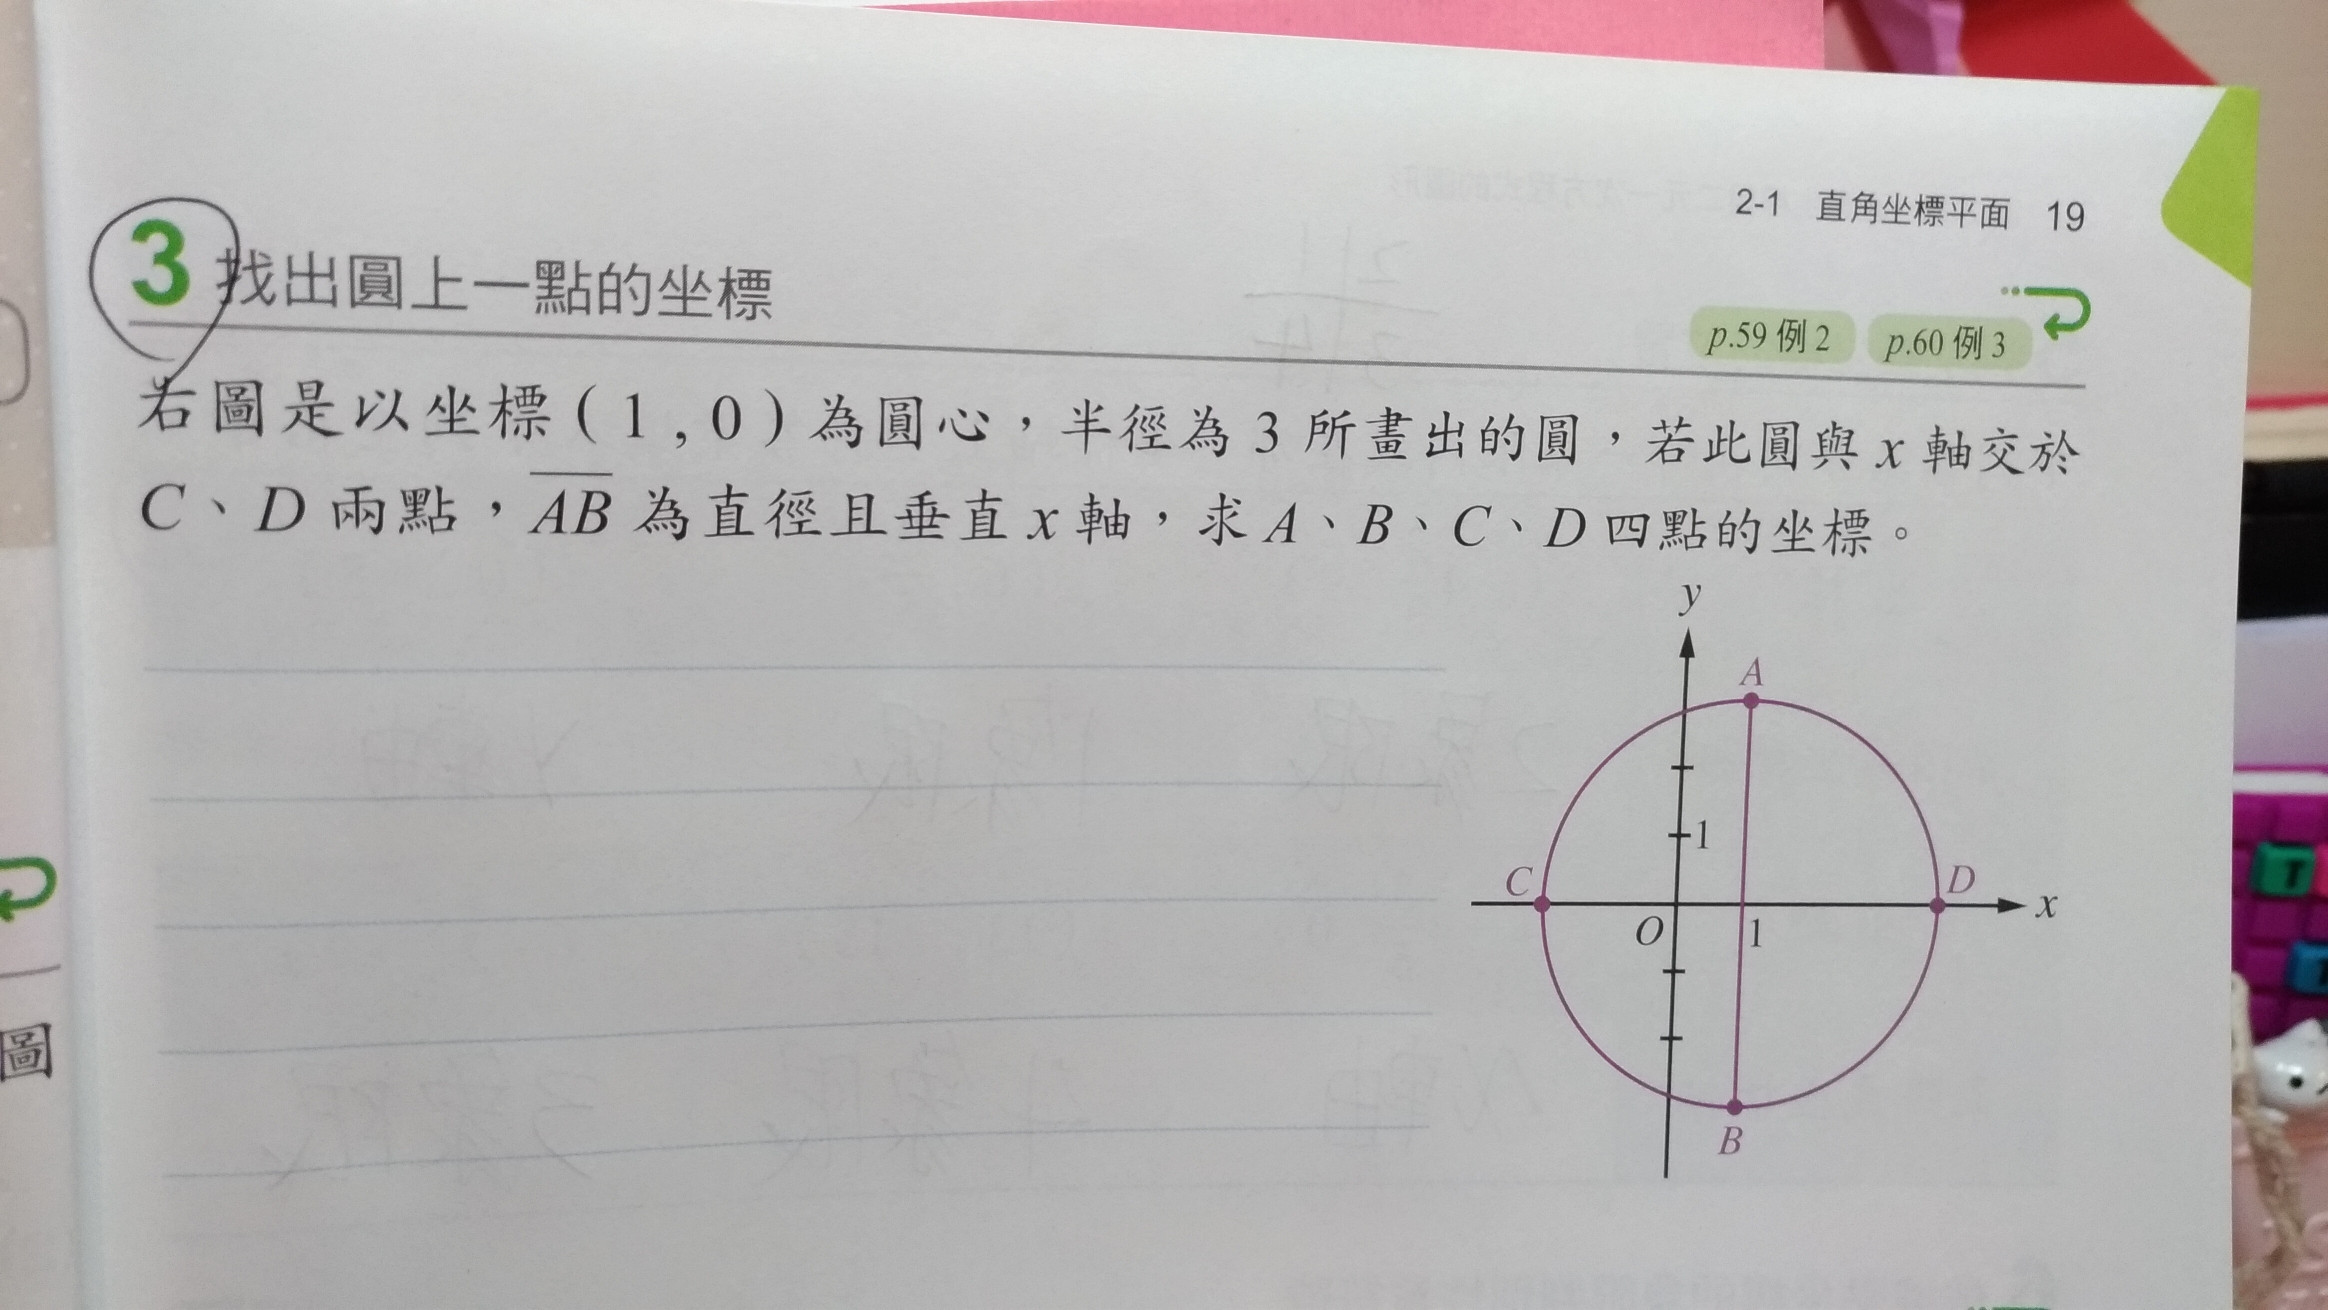 2-1 直角坐標平面 19
3 找出圓上一點的坐標
p.59 例 2 p.60 例 3
右圖是以坐標 ( 1 , 0 ) 為圓心，半徑為 3 所畫出的圓，若此圓與 x 軸交於
C、D 兩點，AB 為直徑且垂直 x 軸，求 A、B、C、D 四點的坐標。
y
A
1
C
D
x
O
1
B
圖
T